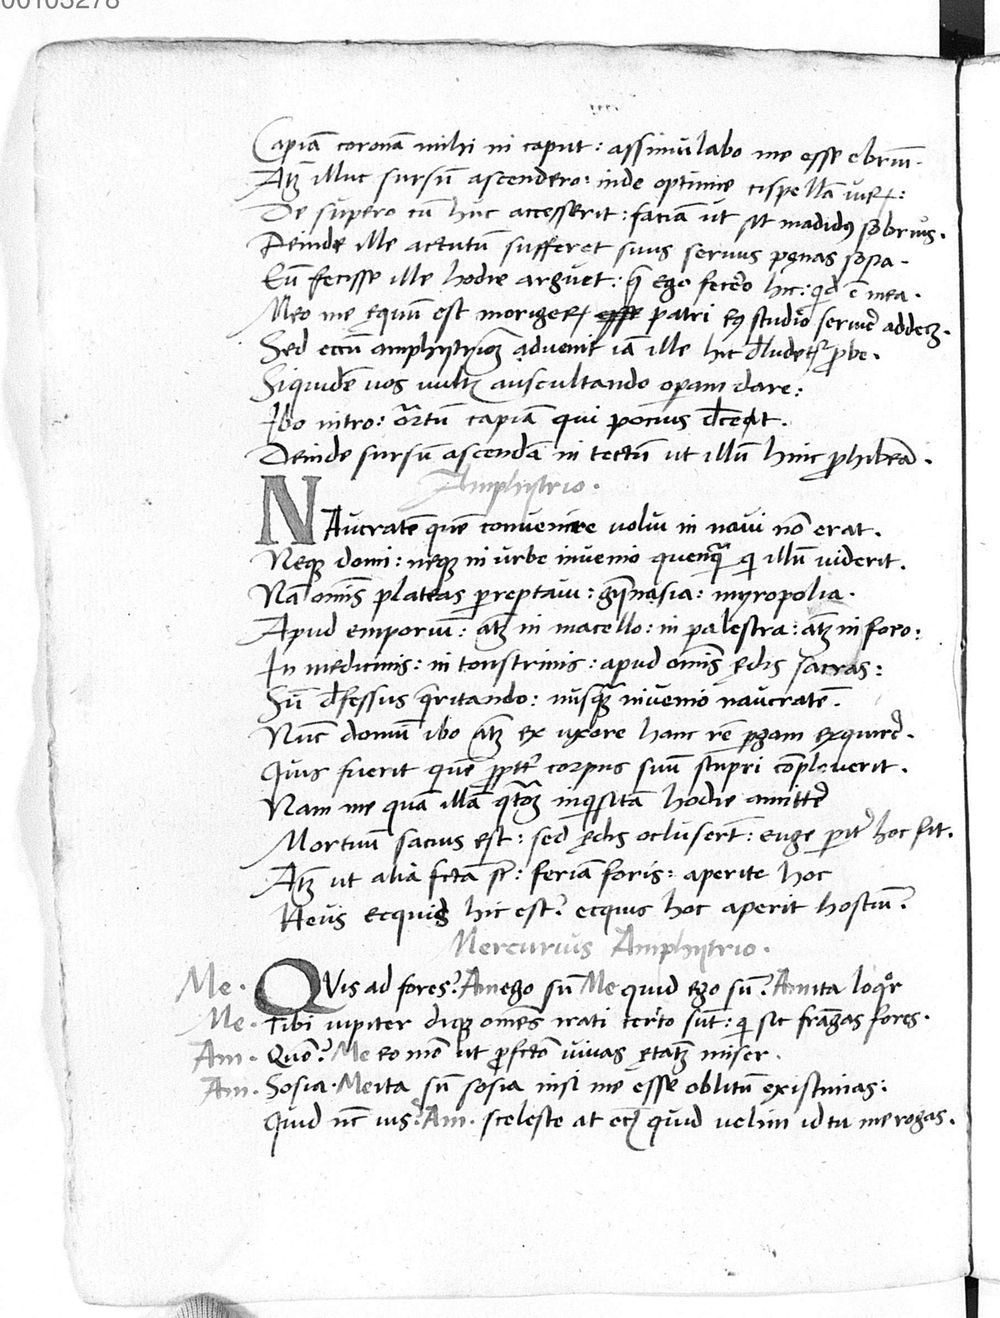 00103278
Capiā coronā mihi in caput: assimulabo me esse ebriū.
Atq illuc sursū ascendero: inde optume cispellā uir:
De supero cū huc accesserit: faciā ut sit madidus sobrius.
Deinde ille actutū sufferet suus seruus pęnas sosia.
Eū fecisse ille hodie arguet: q̄ ego fecero hic: qd ē mea.
Meo me equū est moriger patri eius studio seruir addecz.
Sed eccū amphytrioē aduenit iā ille hic dludetr probe.
Siquidē uos uultis auscultando operam dare:
Ibo intro: ortū capiā qui potius dceat.
Deinde sursū ascendā in tectū ut illū hinc prohibeā.
Amphytrio.
NAucratē quē conuenire uolui in naui nō erat.
Neque domi: neque in urbe inuenio quenquā qi illū uiderit.
Nā omīs plateas perreptaui: gȳnasia: myropolia.
Apud emporiū: atq in macello: in palestra: atq in foro:
In medicinis: in tonstrinis: apud omīs ędis sacras:
Sū dfessus queritando: nusquā inuenio naucratē.
Nūc domū ibo atq ex uxore hanc rē pergam exquirer.
Quis fuerit quē propter corpus suū stupri cōpleuerit.
Nam me quā illā qstioēz inqsitā hodie amitter
Mortuū sacius est: sed ędis oclusert: euge pariter hoc fit.
Atq ut alia fcta st: feriā foris: aperite hoc
Heus ecquis hic est? ecquis hoc aperit hostiū?
Mercurius Amphytrio.
Me. QVis ad fores? Am ego sū Me quid ego sū? Am ita loqr
Me. Tibi iupiter dique omēs irati certo sūt: qi sic frāgas fores.
Am. Quō? Me eo mō ut profcto uiuas ętatē miser.
Am. Sosia. Me ita sū sosia nisi me esse oblitū existimas:
Quid nc uis? Am. sceleste at etiā quid uelim id tu me rogas.